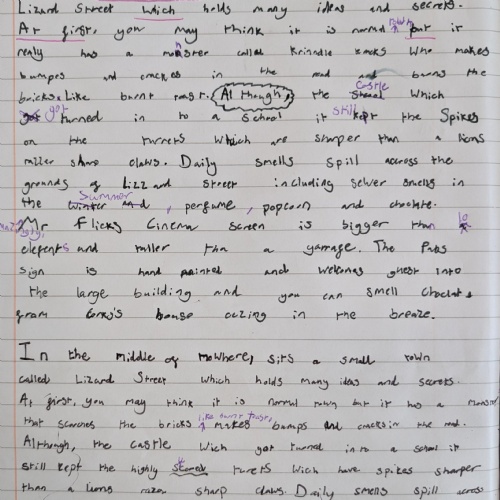 Lizard Street which holds many ideas and secrets.
At first, you may think it is normal town but it
realy has a monster called Krindle who makes
bumpes and crackes in the road and burns the
bricks like burnt toast. Although, the castle which
got turned in to a school it still kept the Spikes
on the turrets which are sharper than a lions
claws. Daily smells spill accross the
grounds of Lizzard street including sewer smells in
the summer, perfume, popcorn and choclate.
Mr Flicks Cinema screen is bigger than 10
elefents and taller than a garage. The Pubs
sign is hand painted and welcomes ghest into
the large building and you can smell Choclate
from house oozing in the breaze.
In the middle of nowhere, sits a small town
called Lizard Street which holds many ideas and secrets.
At first, you may think it is normal town but it has a monster
that scorches the bricks like burnt toast, makes bumps and cracks in the road.
Although, the castle wich got turned into a school it
still kept the highly turets wich have spikes sharper
than a lions razer sharp claws. Daily smells spill across